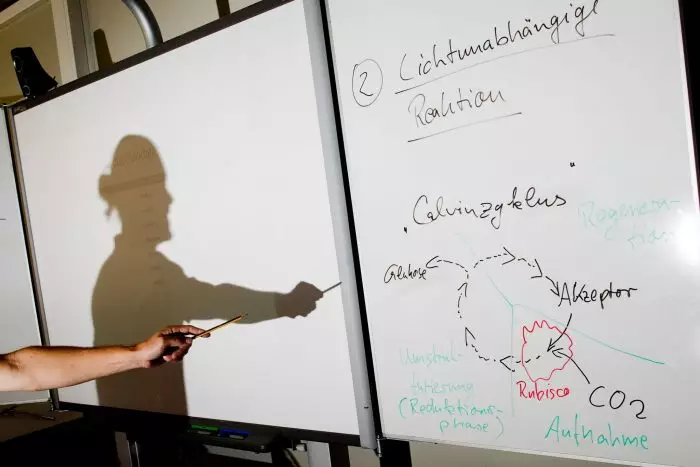 ② Lichtunabhängige
Reaktion
„Calvinzyklus"
Regenera-
tion
Glukose
Akzeptor
Rubisco
CO2
Umstruk-
turierung
(Reduktions-
phase)
Aufnahme